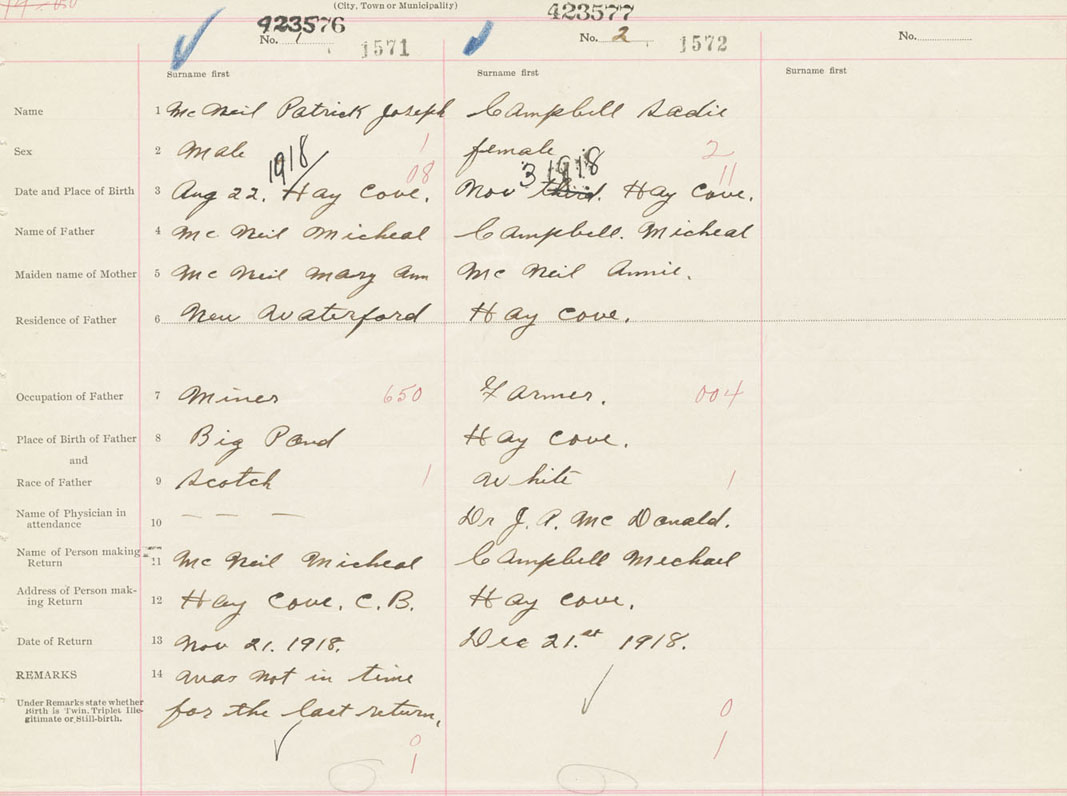 (City, Town or Municipality)
423576 423577
No. 1 1571 No. 2 1572 No.
Surname first Surname first Surname first
Name 1 Mc Neil Patrick Joseph Campbell Sadie
Sex 2 Male 1 female 2
1918 08 3 1918 11
Date and Place of Birth 3 Aug 22. Hay Cove. Nov third. Hay Cove.
Name of Father 4 Mc Neil Micheal Campbell. Micheal
Maiden name of Mother 5 Mc Neil Mary Ann Mc Neil Annie.
Residence of Father 6 New Waterford Hay Cove.
Occupation of Father 7 Miner 650 Farmer. 004
Place of Birth of Father 8 Big Pond Hay Cove.
and
Race of Father 9 Scotch 1 White 1
Name of Physician in
attendance 10 — — — Dr J. P. Mc Donald.
Name of Person making
Return 11 Mc Neil Micheal Campbell Mechael
Address of Person mak-
ing Return 12 Hay Cove. C.B. Hay Cove.
Date of Return 13 Nov 21. 1918. Dec 21.st 1918.
REMARKS 14 was not in time
Under Remarks state whether
Birth is Twin, Triplet Ille-
gitimate or Still-birth.
for the last return.
0 0
1 1